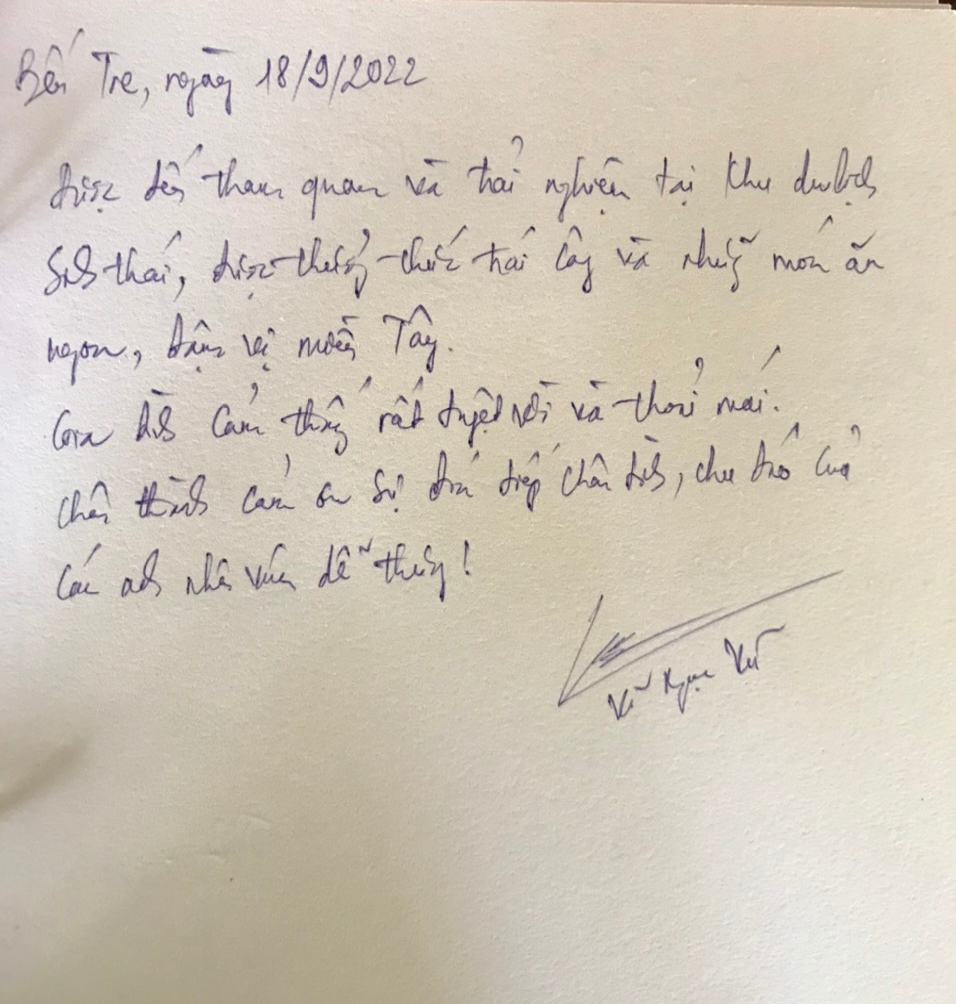 Bến Tre, ngày 18/9/2022
Được đến tham quan và trải nghiệm tại khu du lịch
Sinh thái, được thưởng thức trái cây và những món ăn
ngon, đậm vị miền Tây.
Gia đình cảm thấy rất tuyệt vời và thoải mái.
Chân thành cảm ơn sự đón tiếp chân tình, chu đáo của
các anh nhân viên dễ thương!
Ngọc